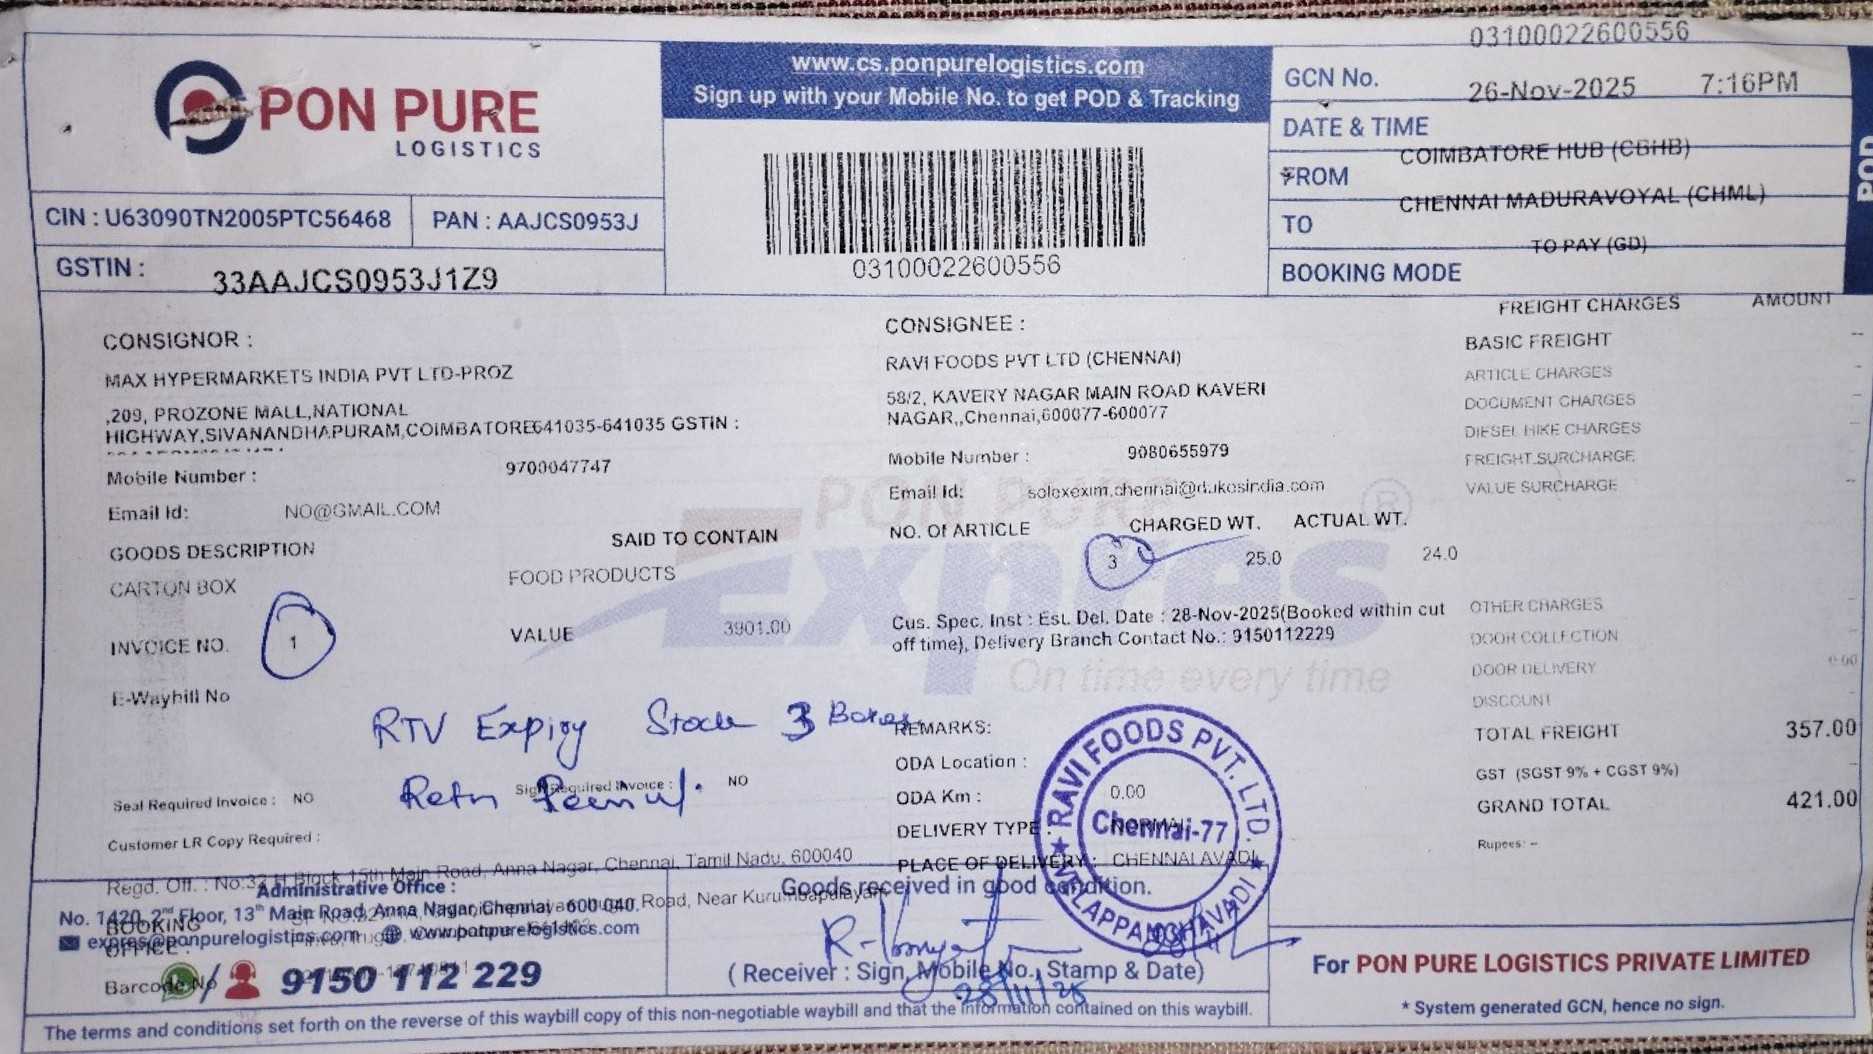 03100022600556
PON PURE
LOGISTICS
www.cs.ponpurelogistics.com
Sign up with your Mobile No. to get POD & Tracking
GCN No.
26-Nov-2025 7:16PM
DATE & TIME
COIMBATORE HUB (CBHB)
FROM
CHENNAI MADURAVOYAL (CHML)
TO
TO PAY (GD)
BOOKING MODE
POD
CIN : U63090TN2005PTC56468
PAN : AAJCS0953J
GSTIN :
33AAJCS0953J1Z9
03100022600556
CONSIGNOR :
MAX HYPERMARKETS INDIA PVT LTD-PROZ
,209, PROZONE MALL,NATIONAL
HIGHWAY,SIVANANDHAPURAM,COIMBATORE641035-641035 GSTIN :
Mobile Number : 9700047747
Email Id: NO@GMAIL.COM
GOODS DESCRIPTION SAID TO CONTAIN
CARTON BOX FOOD PRODUCTS
INVOICE NO. 1 VALUE 3901.00
E-Waybill No
CONSIGNEE :
RAVI FOODS PVT LTD (CHENNAI)
58/2, KAVERY NAGAR MAIN ROAD KAVERI
NAGAR,,Chennai,600077-600077
Mobile Number : 9080655979
Email Id: solexexim.chennai@dukesindia.com
NO. OF ARTICLE CHARGED WT. ACTUAL WT.
3 25.0 24.0
Cus. Spec. Inst : Est. Del. Date : 28-Nov-2025(Booked within cut
off time), Delivery Branch Contact No.: 9150112229
PON PURE
Expres ®
On time every time
FREIGHT CHARGES AMOUNT
BASIC FREIGHT --
ARTICLE CHARGES
DOCUMENT CHARGES
DIESEL HIKE CHARGES
FREIGHT SURCHARGE
VALUE SURCHARGE
OTHER CHARGES
DOOR COLLECTION
DOOR DELIVERY 0.00
DISCOUNT
TOTAL FREIGHT 357.00
GST (SGST 9% + CGST 9%)
GRAND TOTAL 421.00
Rupees: --
RTV Expiry Stock 3 Boxes
Retn
Seal Required Invoice : NO
Sign Required Invoice : NO
Customer LR Copy Required :
REMARKS:
ODA Location :
ODA Km : 0.00
DELIVERY TYPE : NORMAL
PLACE OF DELIVERY : CHENNAI AVADI
RAVI FOODS PVT. LTD.
Chennai-77
VELAPPANCHAVADI
Regd. Off. : No:32 H Block 15th Main Road, Anna Nagar, Chennai, Tamil Nadu, 600040
Administrative Office :
No. 1420, 2nd Floor, 13th Main Road, Anna Nagar, Chennai - 600 040.
Road, Near Kurumbapalayam
BOOKING
OFFICE :
expres@ponpurelogistics.com www.ponpurelogistics.com
Barcode No
9150 112 229
Goods received in good condition.
(Receiver : Sign, Mobile No., Stamp & Date)
28/11/25
For PON PURE LOGISTICS PRIVATE LIMITED
* System generated GCN, hence no sign.
The terms and conditions set forth on the reverse of this waybill copy of this non-negotiable waybill and that the information contained on this waybill.